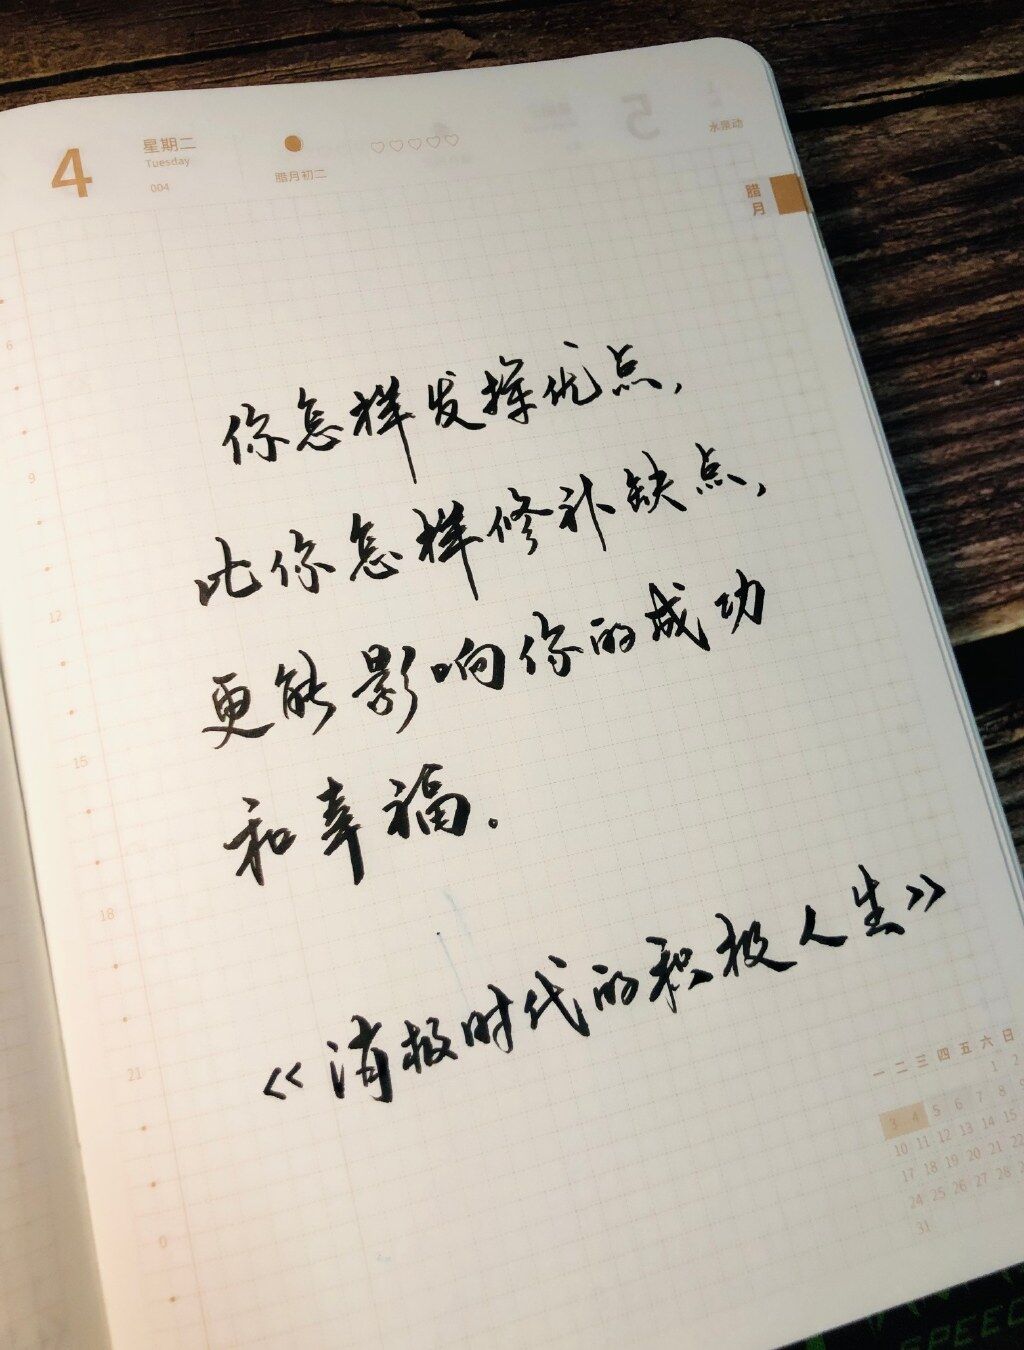 4
星期二
Tuesday
004
腊月初二
5
水泉动
腊月
6
9
你怎样发挥优点,
比你怎样修补缺点,
12
更能影响你的成功
15
和幸福.
18
《消极时代的积极人生》
21
0
一 二 三 四 五 六 日
1 2
3 4 5 6 7 8 9
10 11 12 13 14 15
17 18 19 20 21 22
24 25 26 27 28
31
SPEED